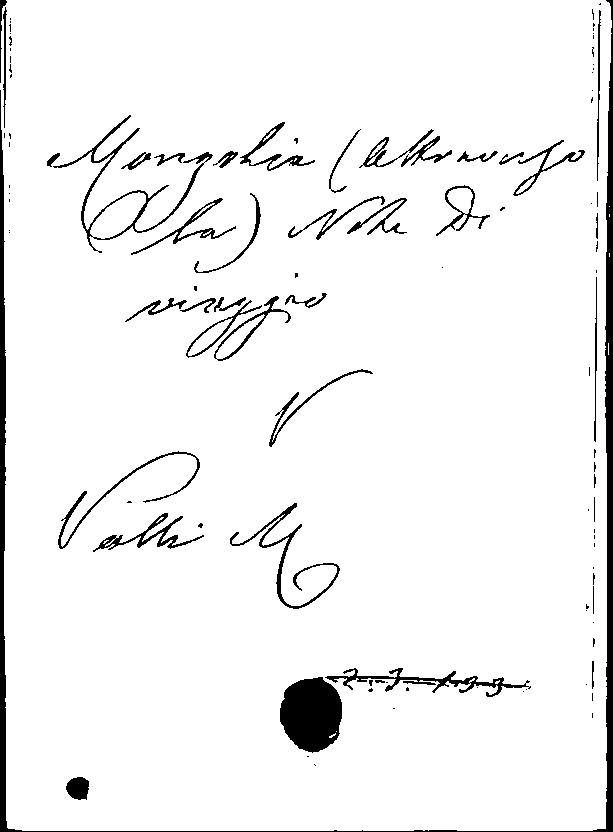 Mongolia (Attraverso
la) Note di
viaggio
V
Valli M
2.J.133